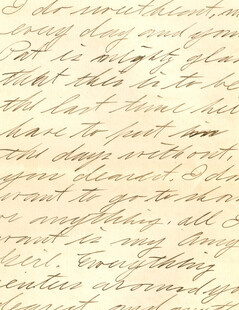 I do sweetheart, m
every day and you
Pat is mighty glad
that this is to be
the last time he
have to put in
the days without,
you dearest. I do
want to go to sho
or anything. all I
want is my Amy
Girl. Everything
enters around yo
dearest and